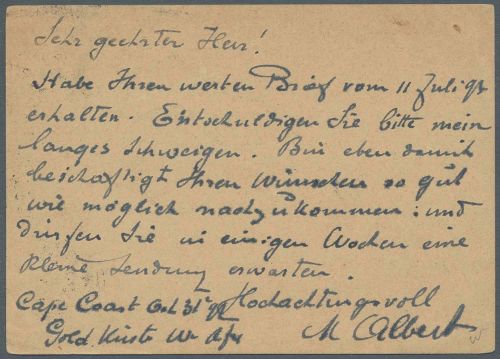 Sehr geehrter Herr!
Habe Ihren werten Brief vom 11 Juli 92
erhalten. Entschuldigen Sie bitte mein
langes Schweigen. Bin eben damit
beschäftigt Ihren Wünschen so gut
wie möglich nachzukommen: und
dürfen Sie in einigen Wochen eine
kleine Sendung erwarten.
Hochachtungsvoll
Cape Coast Oct 31st 92
Gold Küste W. Afr
M Albert